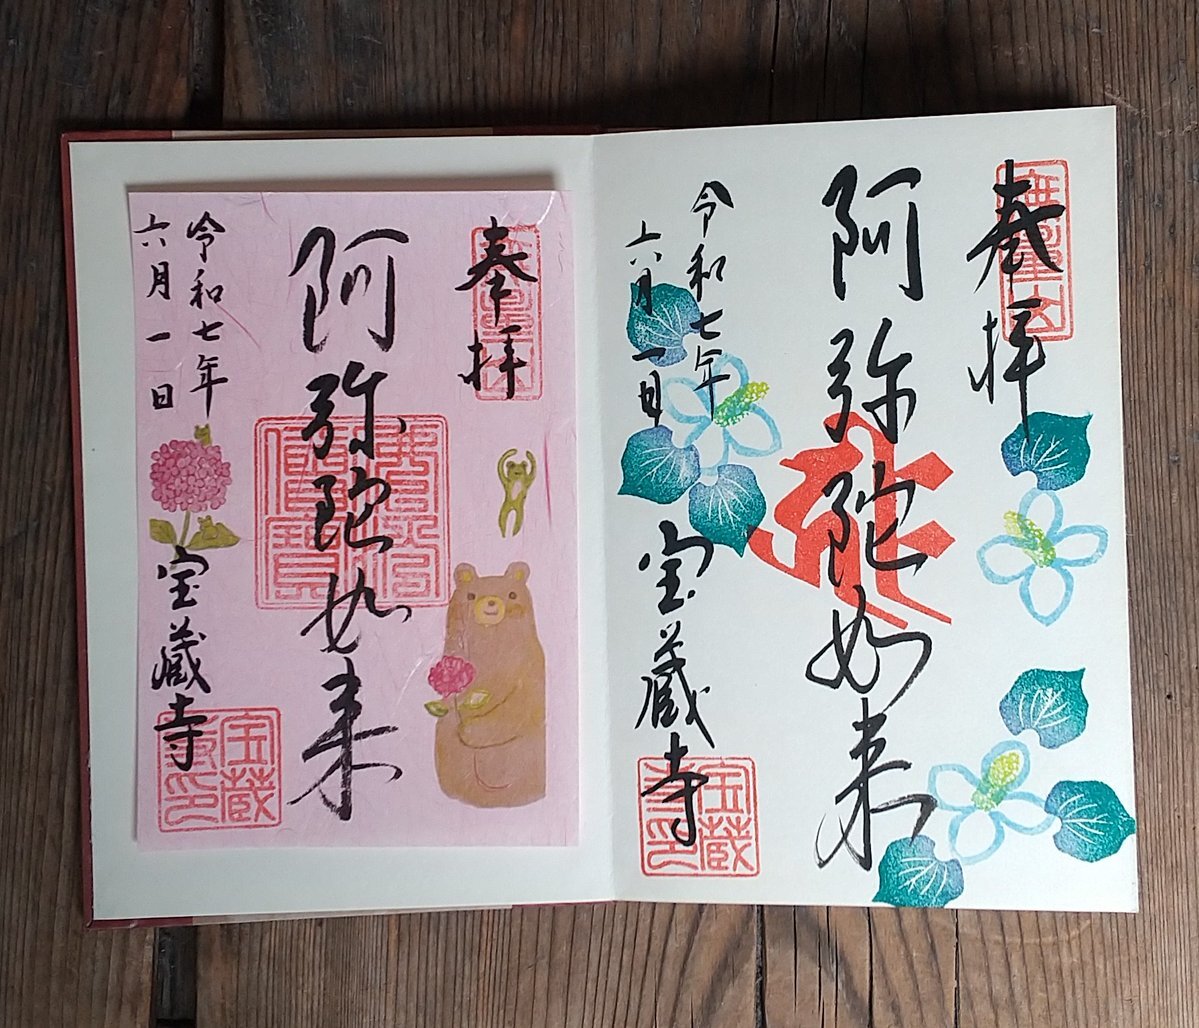 奉拝
阿弥陀如来
令和七年
六月一日
宝蔵寺
宝蔵
寺印
奉拝
阿弥陀如来
令和七年
六月一日
宝蔵寺
宝蔵
寺印